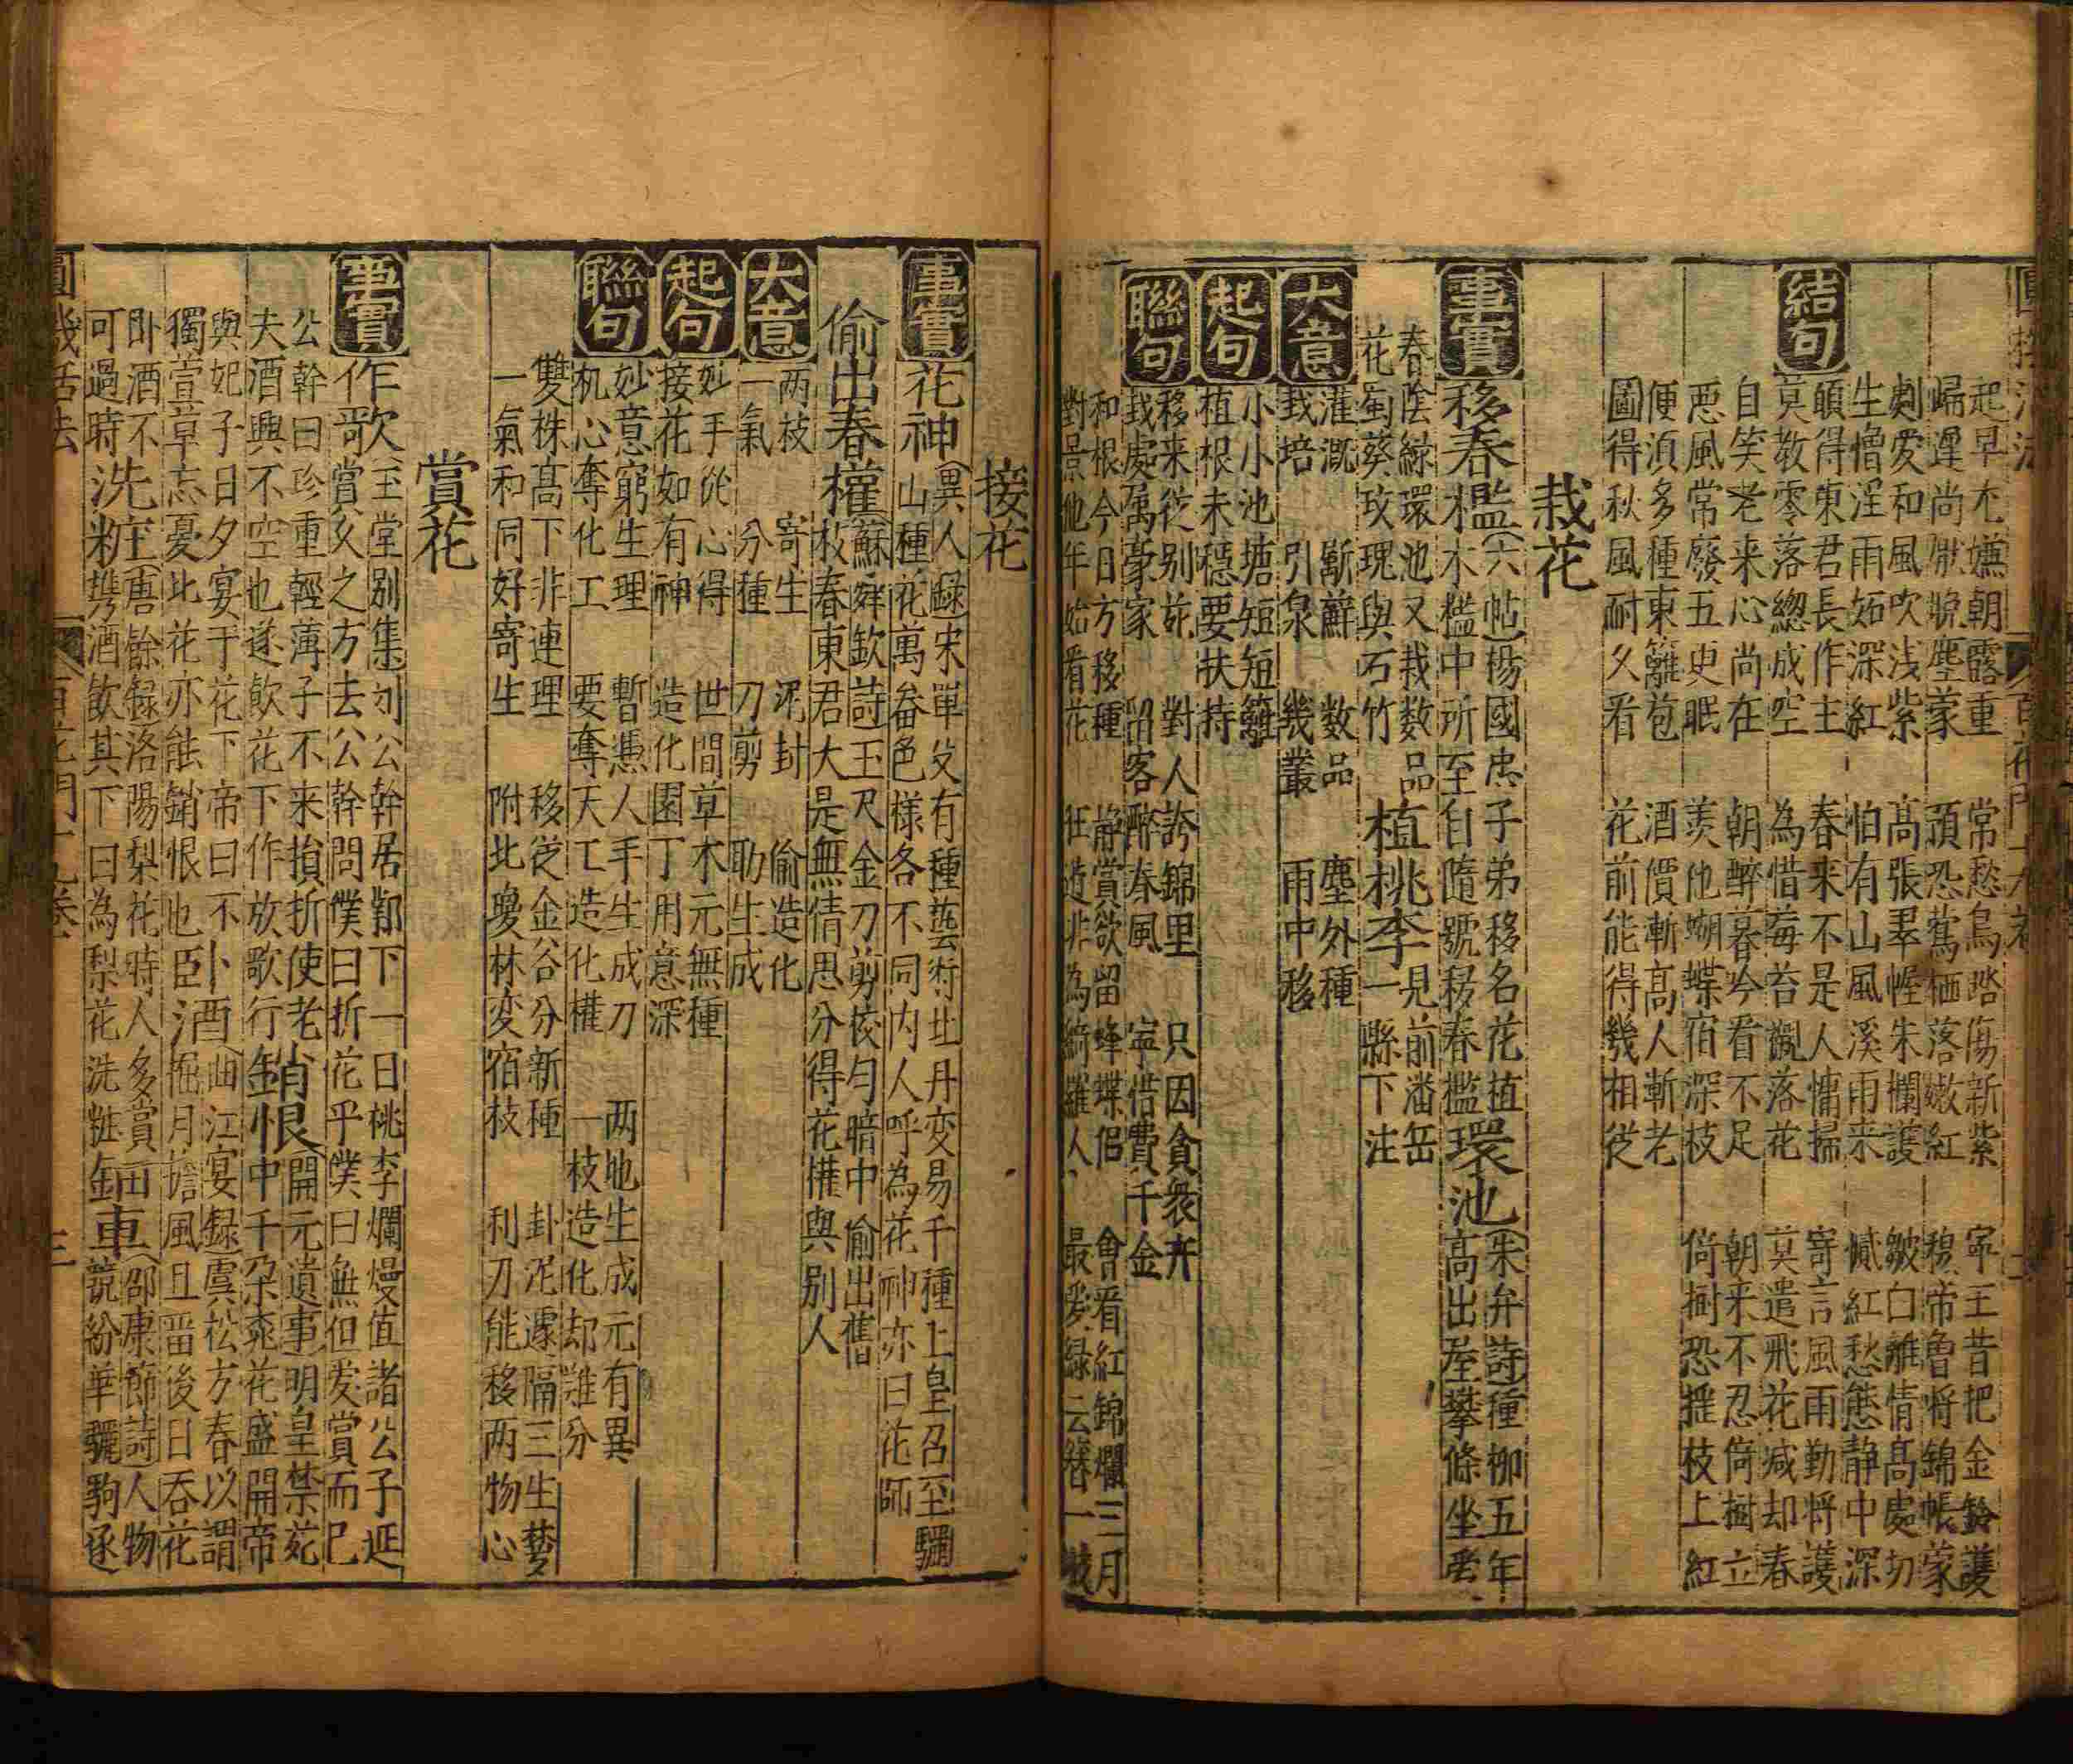 起早尢嫌朝露重 常愁鳥踏傷新紫 寧王昔把金鈴護
歸遲尚 晚塵蒙 預恐鶯栖落嫩紅 穆帝魯將錦帳蒙
劇愛和風吹浅紫 高張翠幄朱欄護 皺白離情高處切
生憎淫雨妬深紅 怕有山風溪雨来 膩紅愁態静中深
結句
願得東君長作主 春来不是人慵掃 寄言風雨勤將護
莫教零落緫成空 為惜莓苔襯落花 莫遣飛花减却春
自笑老来心尚在 朝醉暮吟看不足 朝来不忍倚樹立
悪風常廢五更眠 羡他蝴蝶宿深枝 倚樹恐摇枝上紅
便湏多種東籬苞 酒價漸高人漸老
圖得秋風耐久看 花前能得幾相從
栽花
事實 移春檻 六帖楊國忠子弟移名花植
木檻中所至自随號移春檻 環池 朱弁詩種柳五年
高出屋攀條坐受
春陰綠環池又栽数品
花蜀葵玫瑰與石竹 植桃李 見前潘岳
一縣下注
大意 灌溉 斸蘚 数品 塵外種
栽培 引泉 幾叢 雨中移
起句 小小池塘短短籬
植根未穩要扶持
聯句 移来從别苑 對人誇錦里 只因貪衆卉
栽處属豪家 留客醉春風 寧惜費千金
和根今日方移種 静賞欲留蜂蝶侣 會看紅錦爛三月
對景他年始看花 狂遊非為綺羅人 最愛緑云簪一枝
接花
事實 花神 異人録宋單父有種藝術牡丹变易千種上皇召至驪
山種花萬畚色様各不同内人呼為花神亦曰花師
偷出春權 蘇舜欽詩玉尺金刀剪校匀暗中偷出舊
枝春東君大是無情思分得花權與别人
大意 两枝 寄生 泥封 偷造化
一氣 分種 刀剪 助生成
起句 妙手從心得 世間草木元無種
接花如有神 造化園丁用意深
聯句 妙意窮生理 暫憑人手生成刀 两地生成元有異
机心奪化工 要奪天工造化權 一枝造化却難分
雙株高下非連理 移從金谷分新種 卦泥遽隔三生夢
一氣和同好寄生 附北邊林变宿枝 利刀能移两物心
賞花
事實 作歌 玉堂别集刘公幹居鄴下一日桃李爛熳值諸公子延
賞久之方去公幹問僕曰折花乎僕曰無但爱賞而已
公幹曰珍重輕薄子不来損折使老
夫酒興不空也遂飲花下作放歌行 銷恨 開元遺事明皇禁苑
中千朶桃花盛開帝
與妃子日夕宴于花下帝曰不
獨萱草忘憂此花亦能銷恨也 卜酒 曲江宴録虞松方春以謂
臣握月擔風且留後日吞花
卧酒不
可過時 洗粧 唐餘録洛陽梨花時人多
携酒飲其下曰為梨花洗粧 鈿車 邵康節詩人物
賞 號紛華驪駒逐
圓機活法 百花門十九卷 三